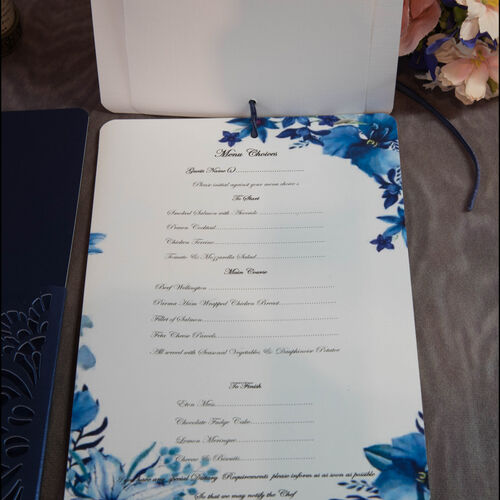 Menu Choices
Guest Name (s)..........................
Please initial against your menu choice s
To Start
Smoked Salmon with Avocado......................
Prawn Cocktail................................
Chicken Terrine................................
Tomato & Mozzarella Salad......................
Main Course
Beef Wellington...........................................
Parma Ham Wrapped Chicken Breast...................
Fillet of Salmon..........................................
Feta Cheese Parcels......................................
All served with Seasonal Vegetables & Dauphinoise Potatoe
To Finish
Eton Mess.................................
Chocolate Fudge Cake.....................
Lemon Meringue..........................
Cheese & Biscuits.........................
have any special Dietary Requirements please inform us as soon as possible
So that we may notify the Chef